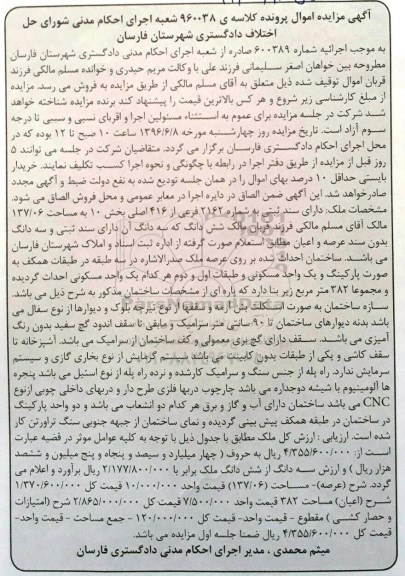 آگهی مزایده اموال پرونده کلاسه ی ۹۶۰۰۳۸ شعبه اجرای احکام مدنی شورای حل
اختلاف دادگستری شهرستان فارسان
به موجب اجرائیه شماره ۶۰۰۳۸۹ صادره از شعبه اجرای احکام مدنی دادگستری شهرستان فارسان
مطروحه بین خواهان اصغر سلیمانی فرزند علی با وکالت مریم حیدری و خوانده مسلم مالکی فرزند
قربان اموال توقیف شده ذیل متعلق به آقای مسلم مالکی از طریق مزایده به فروش می رسد. مزایده
از مبلغ کارشناسی زیر شروع و هر کس بالاترین قیمت را پیشنهاد کند برنده مزایده شناخته خواهد
شد شرکت در جلسه مزایده برای عموم به استثناء مسئولین اجرا و اقربای نسبی و سببی تا درجه
سوم آزاد است. تاریخ مزایده روز چهارشنبه مورخه ۱۳۹۶/۶/۸ ساعت ۱۰ صبح تا ۱۲ بوده که در
محل اجرای احکام دادگستری فارسان برگزار می گردد. متقاضیان شرکت در جلسه می توانند ۵
روز قبل از مزایده از طریق دفتر اجرا در رابطه با چگونگی و نحوه اجرا کسب تکلیف نمایند. خریدار
بایستی حداقل ۱۰ درصد بهای اموال را در همان جلسه تودیع شده به نفع دولت ضبط و آگهی مجدد
صادر خواهد شد. این آگهی ضمن الصاق در دایره اجرا در معابر عمومی و محل فروش الصاق می شود.
مشخصات ملک: دارای سند ثبتی به شماره ۲۱۶۲ فرعی از ۴۱۶ اصلی بخش ۱۰ به مساحت ۱۳۷/۰۶
مالک آقای مسلم مالکی فرزند قربان مالک شش دانگ که سه دانگ آن دارای سند ثبتی و سه دانگ
بدون سند عرصه و اعیان مطابق استعلام صورت گرفته از اداره ثبت اسناد و املاک شهرستان فارسان
می باشد. ساختمان احداث شده بر روی عرصه ملک صدرالاشاره در سه طبقه در طبقات همکف به
صورت پارکینگ و یک واحد مسکونی و طبقات اول و دوم هر کدام یک واحد مسکونی احداث گردیده
و مجموعا ۳۸۲ متر مربع زیر بنا دارد که پاره ای از مشخصات ساختمان مذکور به شرح ذیل می باشد.
سازه ساختمان به صورت اسکلت بتن آرمه و سقفها از نوع تیرچه بلوک و دیوارها از نوع سفال می
باشد بدنه دیوارهای ساختمان تا ۹۰ سانتی متر سرامیک و مابقی تا سقف اندود گچ سفید بدون رنگ
آمیزی می باشد. سقف دارای گچ بری معمولی و کف ساختمان از سرامیک می باشد. آشپزخانه تا
سقف کاشی و یکی از طبقات بدون کابینت می باشد سیستم گرمایش از نوع بخاری گازی و سیستم
سرمایش ندارد. راه پله از جنس سنگ و سرامیک کارشده و نرده راه پله از نوع استیل می باشد پنجره
ها آلومینیوم با شیشه دوجداره می باشد چارچوب دربها فلزی طرح دار و دربهای داخلی چوبی ازنوع
CNC می باشد ساختمان دارای آب و گاز و برق هر کدام دو انشعاب می باشد و دو واحد پارکینگ
در ساختمان در طبقه همکف پیش بینی گردیده و نمای ساختمان از جبهه جنوبی سنگ تراورتن کار
شده است. ارزیابی: ارزش کل ملک مطابق با جدول ذیل با توجه به کلیه عوامل موثر در قضیه عبارت
است از: ۴/۳۵۵/۶۰۰/۰۰۰ ریال به حروف (چهار میلیارد و سیصد و پنجاه و پنج میلیون و ششصد
هزار ریال) و ارزش سه دانگ از شش دانگ ملک برابر با ۲/۱۷۷/۸۰۰/۰۰۰ ریال برآورد و اعلام می
گردد. شرح (عرصه)- مساحت (۱۳۷/۰۶) قیمت واحد ۱۰/۰۰۰/۰۰۰ قیمت کل ۱/۳۷۰/۶۰۰/۰۰۰
شرح (اعیان) مساحت ۳۸۲ قیمت واحد ۷/۵۰۰/۰۰۰ قیمت کل ۲/۸۶۵/۰۰۰/۰۰۰ شرح (امتیازات
و حصار کشی) مقطوع - قیمت واحد- قیمت کل ۱۲۰/۰۰۰/۰۰۰ - جمع مساحت - قیمت واحد-
قیمت کل ۴/۳۵۵/۶۰۰/۰۰۰ ریال ضمنا جلسه اول مزایده می باشد.
میثم محمدی، مدیر اجرای احکام مدنی دادگستری فارسان